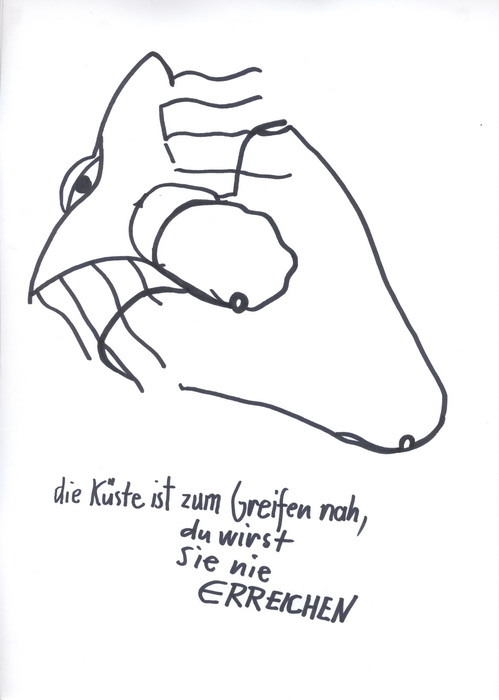 die Küste ist zum Greifen nah,
du wirst
sie nie
ERREICHEN